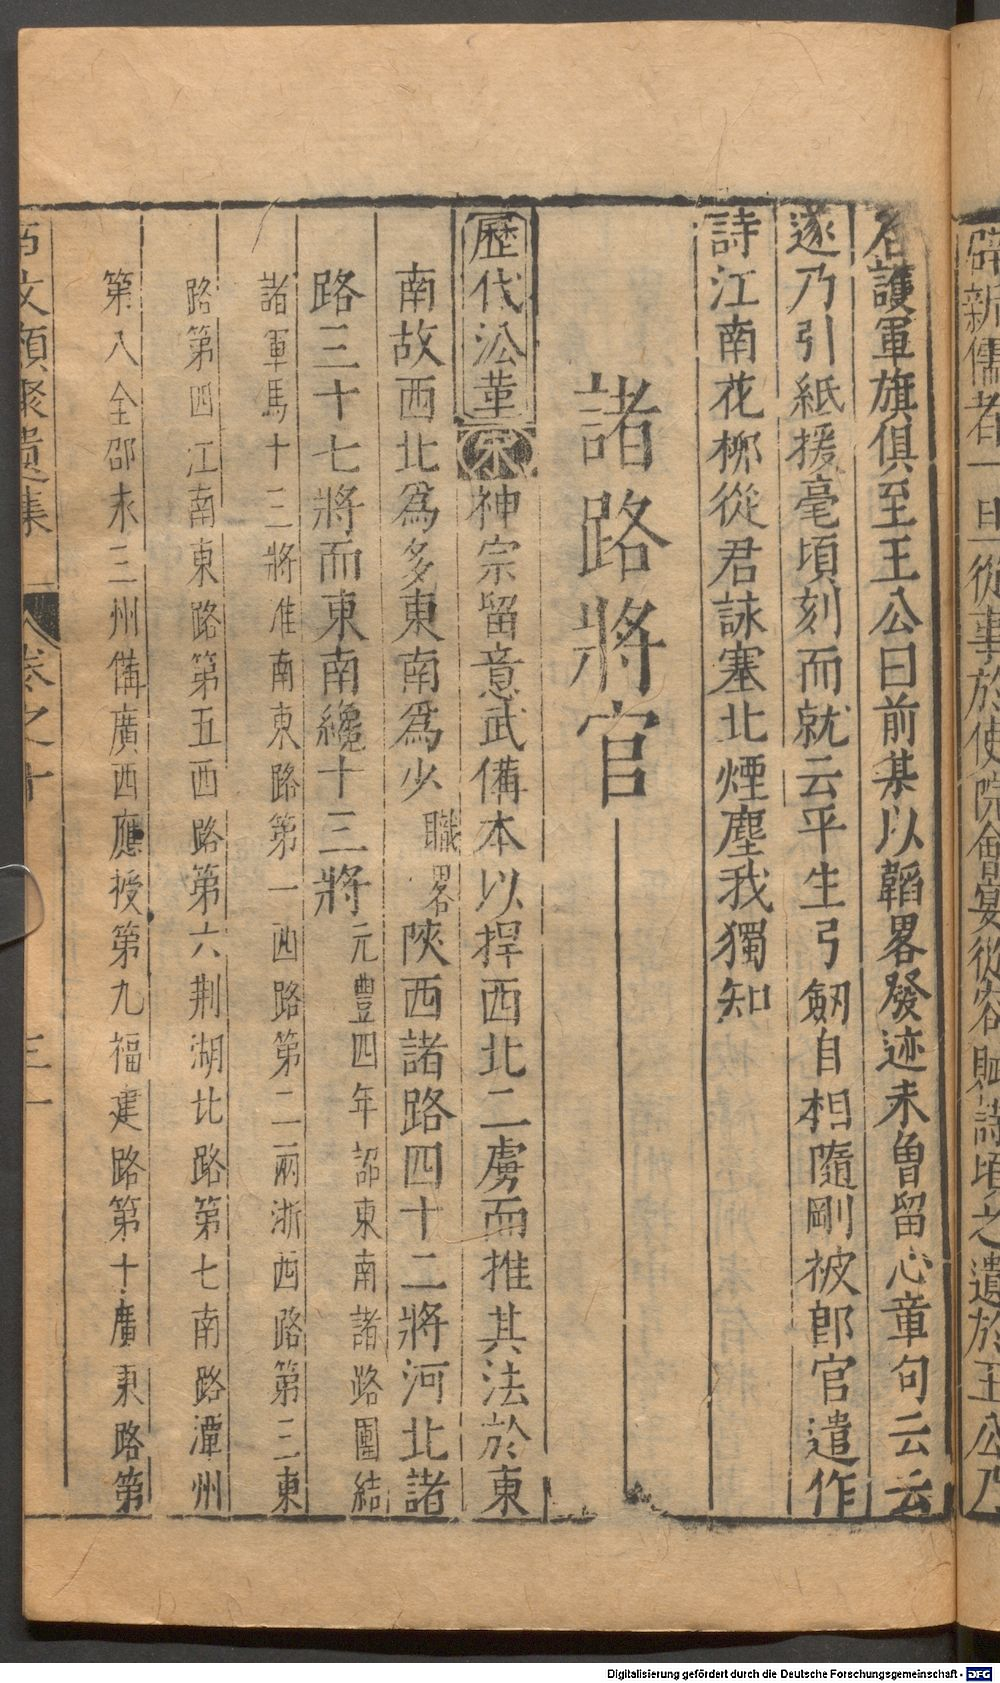 辟新儒者一旦從事於使院會宴從容賦詩頃之遺於王公乃
召護軍旗俱至王公曰前某以韜畧發迹未曾留心章句云云
遂乃引紙援毫頃刻而就云平生弓劔自相隨剛被郎官遣作
詩江南花柳從君詠塞北煙塵我獨知
諸路將官
歷代沿革宋神宗留意武備本以捍西北二虜而推其法於東
南故西北爲多東南爲少職畧陝西諸路四十二將河北諸
路三十七將而東南纔十三將元豐四年詔東南諸路團結
諸軍馬十三將淮南東路第一西路第二兩浙西路第三東
路第四江南東路第五西路第六荆湖北路第七南路潭州
第八全邵永三州備廣西應授第九福建路第十廣東路第
古今事文類聚遺集 卷之十 三一
Digitalisierung gefördert durch die Deutsche Forschungsgemeinschaft - DFG